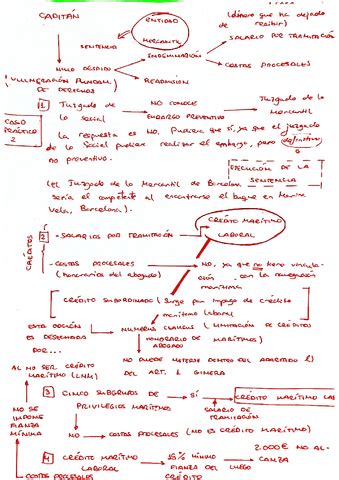 (dinero que ha dejado de recibir)
CAPITÁN
ENTIDAD MERCANTIL
SALARIO POR TRAMITACIÓN
SENTENCIA
INDEMNIZACIÓN
COSTAS PROCESALES
NULO DESPIDO
READMISIÓN
(VULNERACIÓN FUNDAM.) DE DERECHOS
CASO PRÁCTICO 2
1 Juzgado de lo social
NO CONOCE
EMBARGO PREVENTIVO
Juzgado de lo Mercantil
La respuesta es NO. Pudiera que sí, ya que el juzgado
de lo Social pudiera realizar el embargo, pero definitivo
no preventivo.
EJECUCIÓN DE LA SENTENCIA
(el Juzgado de lo Mercantil de Barcelona
sería el competent al encontrarse el buque en Marina
Vela, Barcelona).
CRÉDITO MARÍTIMO LABORAL
CRÉDITOS
2 - SALARIOS POR TRAMITACIÓN
- COSTAS PROCESALES
(honorarios del abogado)
NO, ya que no tiene vincula-
ción con la navegación
marítima
CRÉDITO SUBORDINADO (Surge por impago de crédito
marítimo laboral)
ESTA OPCIÓN ES DESCARTADA POR...
NUMERUS CLAUSUS (LIMITACIÓN DE CRÉDITOS MARÍTIMOS)
HONORARIO DE ABOGADO
NO PUEDE METERSE DENTRO DEL APARTADO l)
DEL ART. 1 GINEBRA
AL NO SER CRÉDITO MARÍTIMO (LNM)
3 CINCO SUBGRUPOS DE PRIVILEGIOS MARÍTIMOS
SÍ
CRÉDITO MARÍTIMO LAB
SALARIO DE TRAMITACIÓN
NO SE IMPONE FIANZA MÍNIMA
NO
COSTAS PROCESALES (NO ES CRÉDITO MARÍTIMO)
4 CRÉDITO MARÍTIMO LABORAL
15% MÍNIMO FIANZA DEL
CRÉDITO
2.000€ NO AL-
CANZA
COSTAS PROCESALES